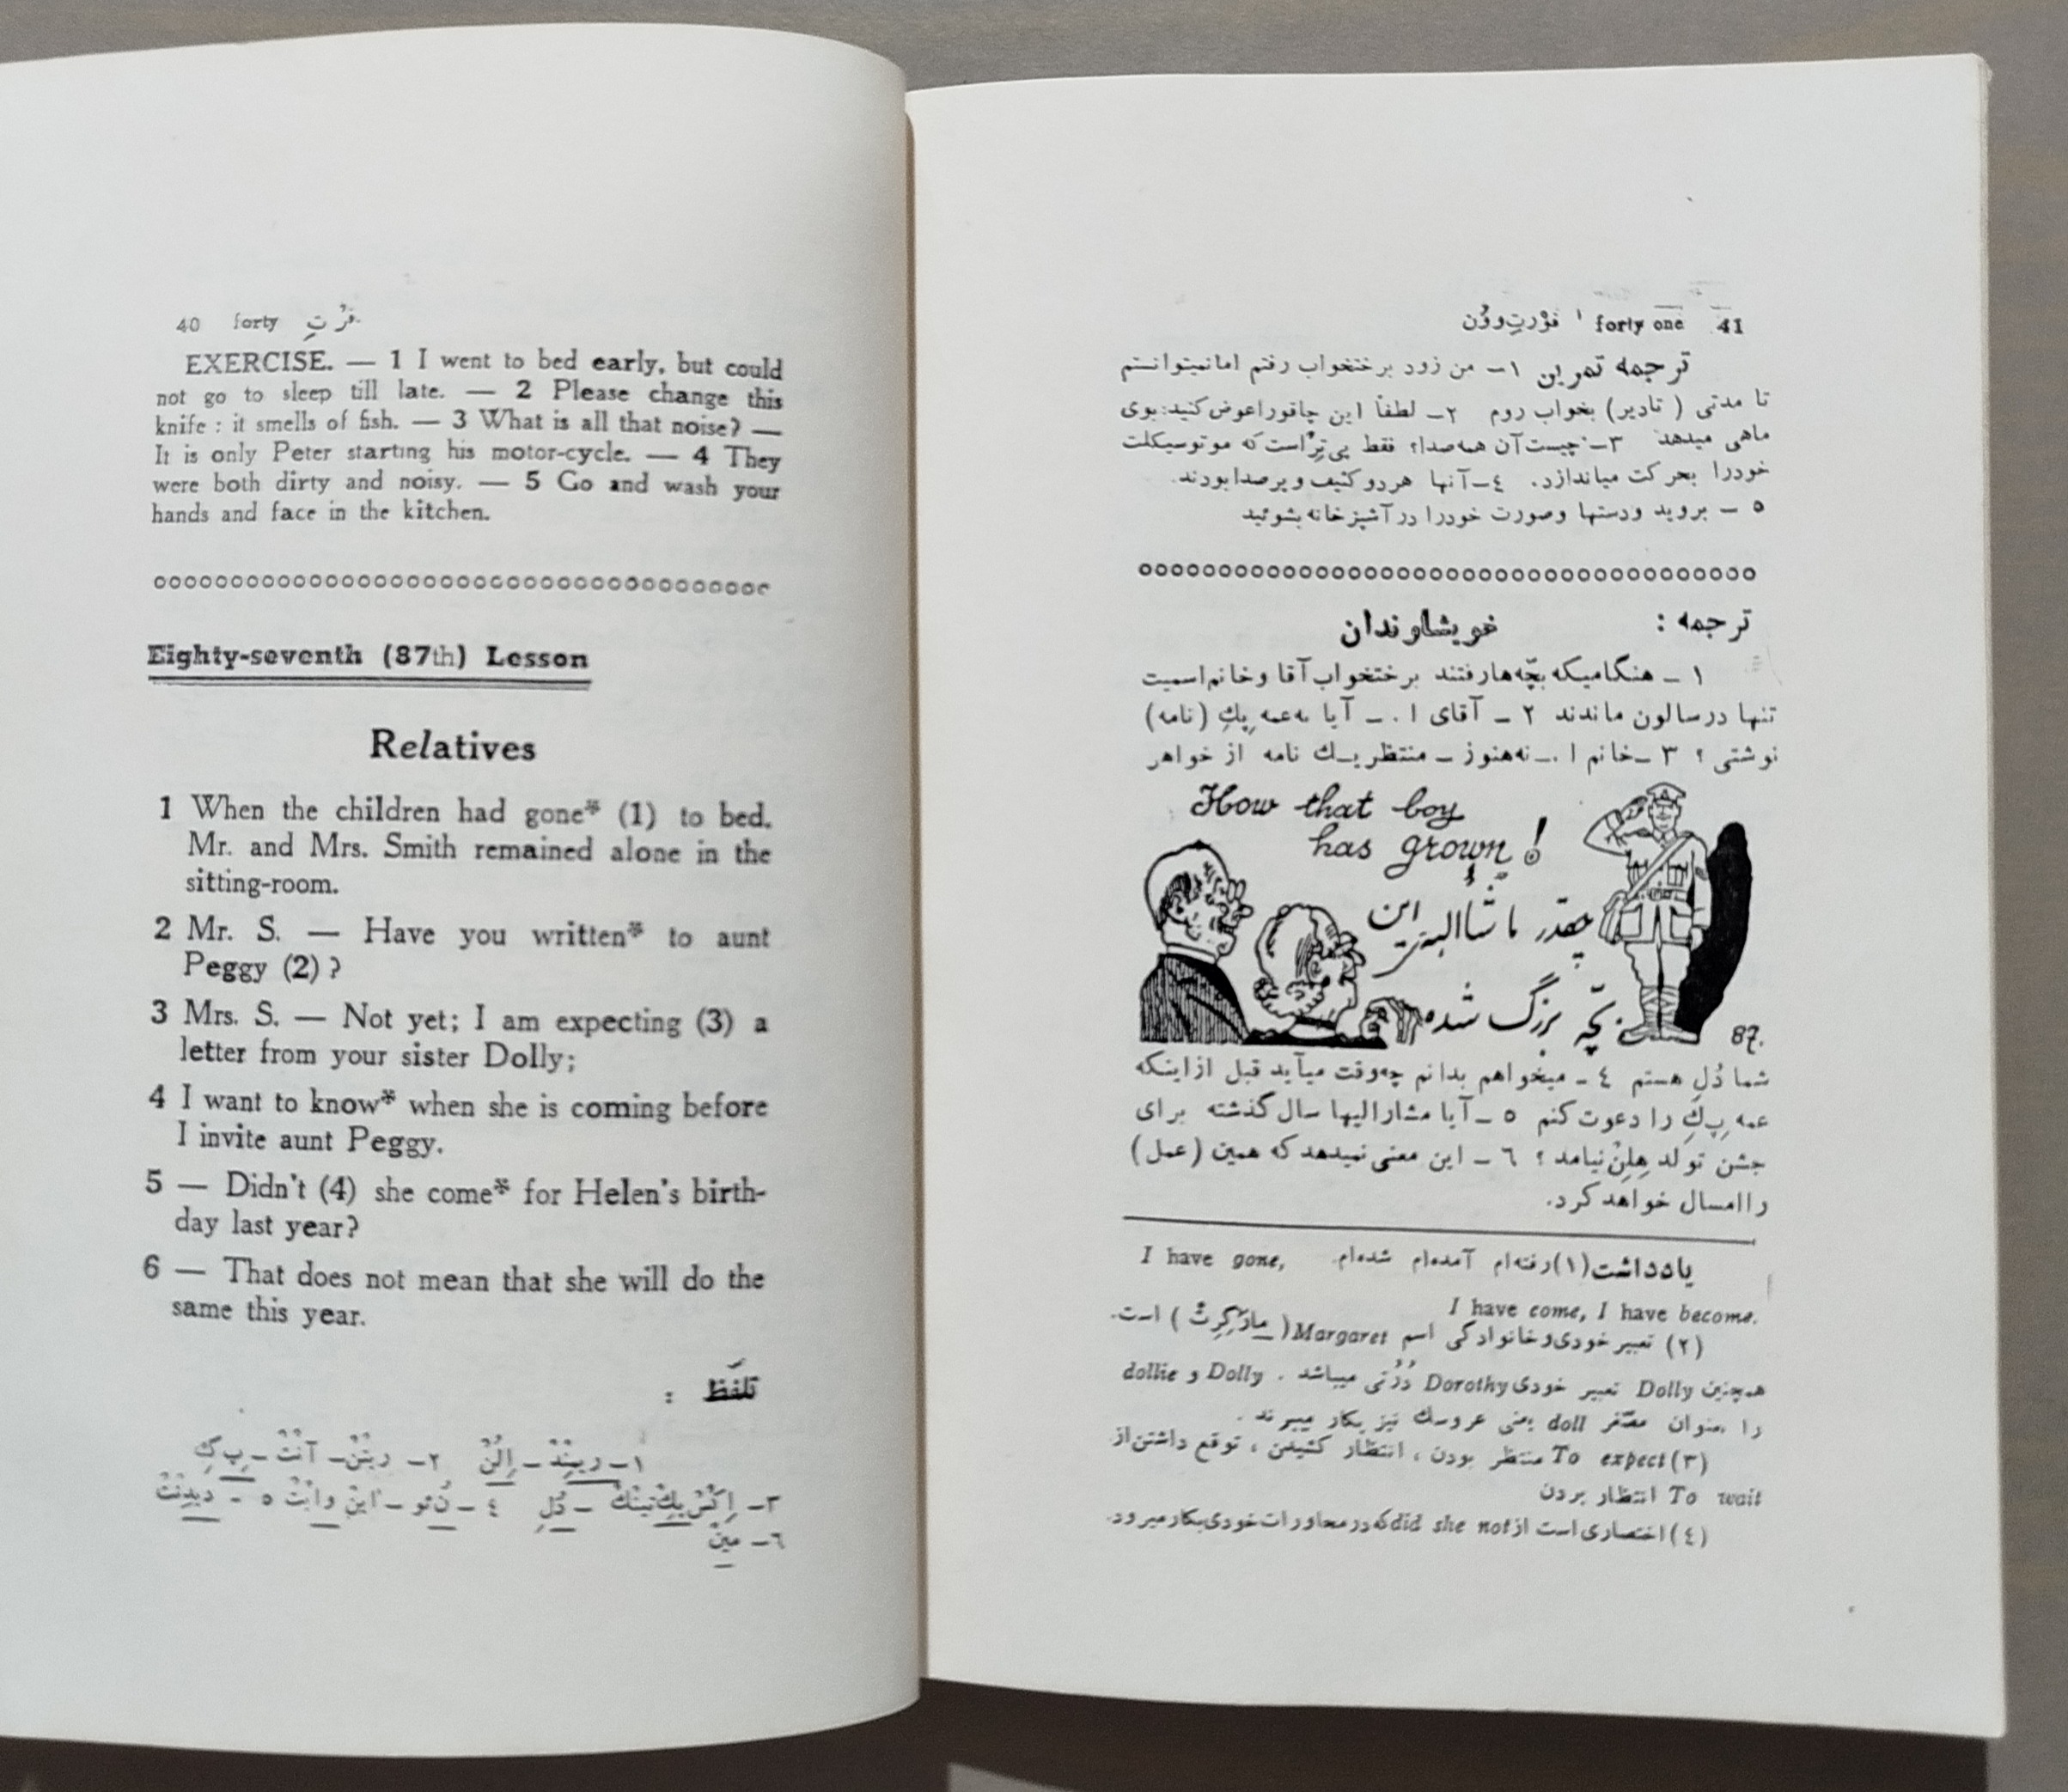 40 forty فرْتِ
EXERCISE. — 1 I went to bed early, but could
not go to sleep till late. — 2 Please change this
knife : it smells of fish. — 3 What is all that noise? —
It is only Peter starting his motor-cycle. — 4 They
were both dirty and noisy. — 5 Go and wash your
hands and face in the kitchen.
Eighty-seventh (87th) Lesson
Relatives
1 When the children had gone* (1) to bed.
Mr. and Mrs. Smith remained alone in the
sitting-room.
2 Mr. S. — Have you written* to aunt
Peggy (2) ?
3 Mrs. S. — Not yet; I am expecting (3) a
letter from your sister Dolly;
4 I want to know* when she is coming before
I invite aunt Peggy.
5 — Didn't (4) she come* for Helen's birth-
day last year?
6 — That does not mean that she will do the
same this year.
تلفظ :
۱ــ ریمِنْدْ ــ اِلُنْ ۲ــ ریتْنْ ــ آنْتْ ــ پِگِ
۳ــ اِکْسْ‌پِکْ‌تینْگْ ــ دُلِ ٤ ــ نُ‌ئو ــ این‌وایْتْ ٥ ــ دیدِنْتْ
٦ــ مین
فوْرتِ‌ووُن forty one 41
ترجمه تمرین ۱ــ من زود برختخواب رفتم امانمیتوانستم
تا مدتی (تادیر) بخواب روم ۲ــ لطفاً این چاقوراعوض‌کنید:بوی
ماهی میدهد ۳ــ چیست‌آن همه‌صدا؟ فقط پی‌تِرْاست‌که موتوسیکلت
خودرا بحرکت میاندازد. ٤ــ آنها هردوکثیف‌وپرصدابودند.
٥ ــ بروید ودستها وصورت خودرا درآشپزخانه بشوئید
ترجمه : خویشاوندان
۱ ــ هنگامیکه بچّه‌هارفتند برختخواب‌آقا وخانم‌اسمیت
تنها درسالون ماندند ۲ ــ آقای ا. ــ آیا به‌عمه پِگِ (نامه)
نوشتی ؟ ۳ ــ خانم ا. ــ نه‌هنوز ــ منتظریــك نامه از خواهر
How that boy
has grown!
چقدر ماشاالله این
بچّه بزرگ شده
87.
شما دُلِ هستم ٤ ــ میخواهم بدانم چه‌وقت میآید قبل ازاینکه
عمه پِگِ را دعوت‌کنم ٥ ــ آیا مشارالیها سال‌گذشته برای
جشن تولد هِلِنْ‌نیامد ؟ ٦ ــ این معنی نمیدهدکه همین (عمل)
راامسال خواهدکرد.
یادداشت(۱)رفته‌ام آمده‌ام شده‌ام. I have gone,
I have come, I have become.
(۲) تعبیرخودی‌وخانوادگی اسم Margaret (مارْگِرِتْ) است.
همچنین Dolly تعبیر خودی Dorothy دُرُتی میباشد . Dolly و dollie
را بعنوان مصّغر doll یعنی عروسك نیز بکار میبرند .
(۳) To expect منتظر بودن ، انتظار کشیدن ، توقع داشتن‌از.
To wait انتظار بردن
(٤) اختصاری‌است از did she not که‌درمحاورات‌خودی‌بکارمیرود.